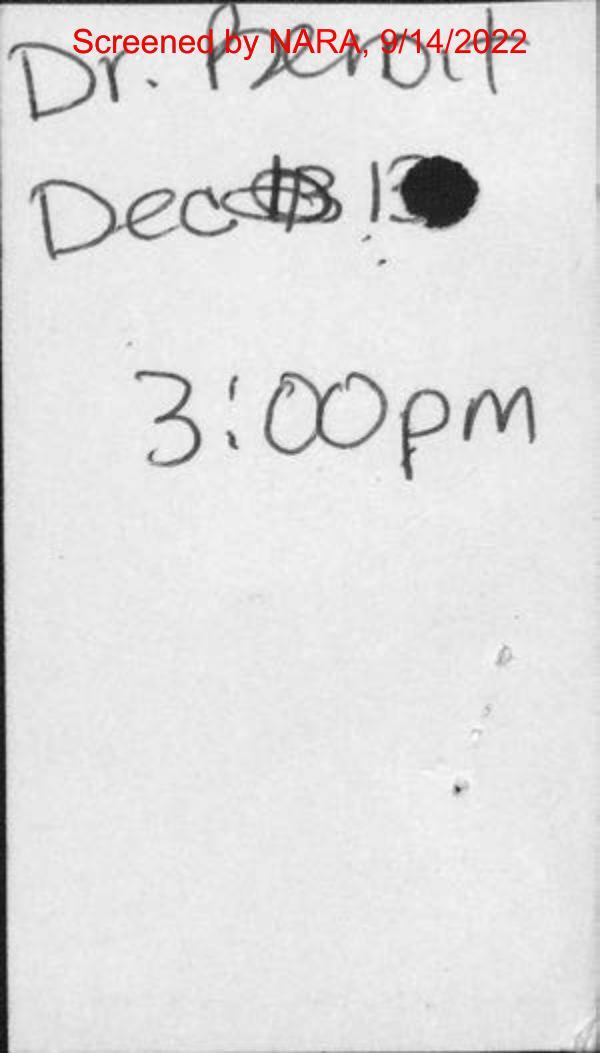 Screened by NARA, 9/14/2022
Dr. Benoit
Dec 13
3:00pm